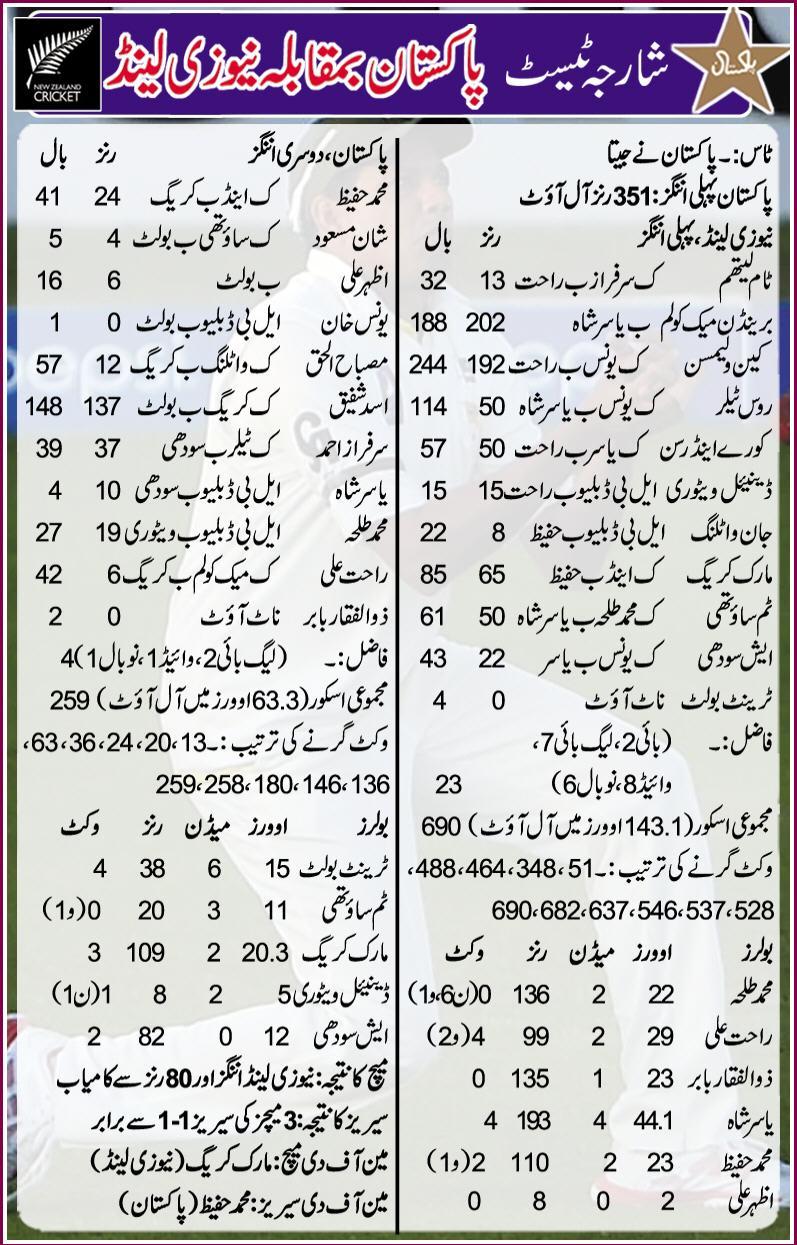 NEW ZEALAND
CRICKET
شارجہ ٹیسٹ پاکستان بمقابلہ نیوزی لینڈ
پاکستان
ٹاس:۔ پاکستان نے جیتا
پاکستان پہلی اننگز: 351 رنز آل آؤٹ
نیوزی لینڈ، پہلی اننگز رنز بال
ٹام لیتھم ک سرفراز ب راحت 13 32
برینڈن میک کولم ب یاسر شاہ 202 188
کین ولیمسن ک یونس ب راحت 192 244
روس ٹیلر ک یونس ب یاسر شاہ 50 114
کورے اینڈرسن ک یاسر ب راحت 50 57
ڈینئیل ویٹوری ایل بی ڈبلیو ب راحت 15 15
جان واٹلنگ ایل بی ڈبلیو ب حفیظ 8 22
مارک کریگ ک اینڈ ب حفیظ 65 85
ٹم ساؤتھی ک محمد طلحہ ب یاسر شاہ 50 61
ایش سودھی ک یونس ب یاسر 22 43
ٹرینٹ بولٹ ناٹ آؤٹ 0 4
فاضل:۔ (بائی 2، لیگ بائی 7،
وائیڈ 8، نو بال 6) 23
مجموعی اسکور (143.1 اوورز میں آل آؤٹ) 690
وکٹ گرنے کی ترتیب:۔ 51، 348، 464، 488،
528، 537، 546، 637، 682، 690
بولرز اوورز میڈن رنز وکٹ
محمد طلحہ 22 2 136 0 (ن6، و1)
راحت علی 29 2 99 4 (و2)
ذوالفقار بابر 23 1 135 0
یاسر شاہ 44.1 4 193 4
محمد حفیظ 23 2 110 2 (و1)
اظہر علی 2 0 8 0
پاکستان، دوسری اننگز رنز بال
محمد حفیظ ک اینڈ ب کریگ 24 41
شان مسعود ک ساؤتھی ب بولٹ 4 5
اظہر علی ب بولٹ 6 16
یونس خان ایل بی ڈبلیو ب بولٹ 0 1
مصباح الحق ک واٹلنگ ب کریگ 12 57
اسد شفیق ک کریگ ب بولٹ 137 148
سرفراز احمد ک ٹیلر ب سودھی 37 39
یاسر شاہ ایل بی ڈبلیو ب سودھی 10 4
محمد طلحہ ایل بی ڈبلیو ب ویٹوری 19 27
راحت علی ک میک کولم ب کریگ 6 42
ذوالفقار بابر ناٹ آؤٹ 0 2
فاضل:۔ (لیگ بائی 2، وائیڈ 1، نو بال 1) 4
مجموعی اسکور (63.3 اوورز میں آل آؤٹ) 259
وکٹ گرنے کی ترتیب:۔ 13، 20، 24، 36، 63،
136، 146، 180، 258، 259
بولرز اوورز میڈن رنز وکٹ
ٹرینٹ بولٹ 15 6 38 4
ٹم ساؤتھی 11 3 20 0 (و1)
مارک کریگ 20.3 2 109 3
ڈینئیل ویٹوری 5 2 8 1 (ن1)
ایش سودھی 12 0 82 2
میچ کا نتیجہ: نیوزی لینڈ اننگز اور 80 رنز سے کامیاب
سیریز کا نتیجہ: 3 میچز کی سیریز 1-1 سے برابر
مین آف دی میچ: مارک کریگ (نیوزی لینڈ)
مین آف دی سیریز: محمد حفیظ (پاکستان)